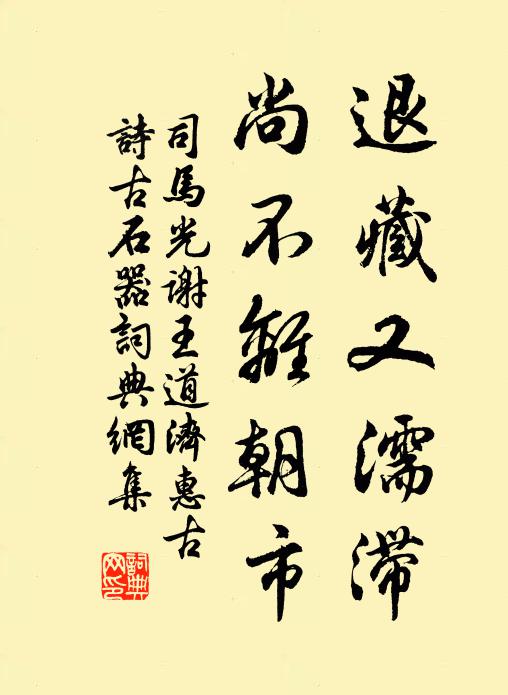 退藏又濡滞
尚不離朝市
司馬光謝王道濟惠古
詩古石器詞典網集
詞典網印